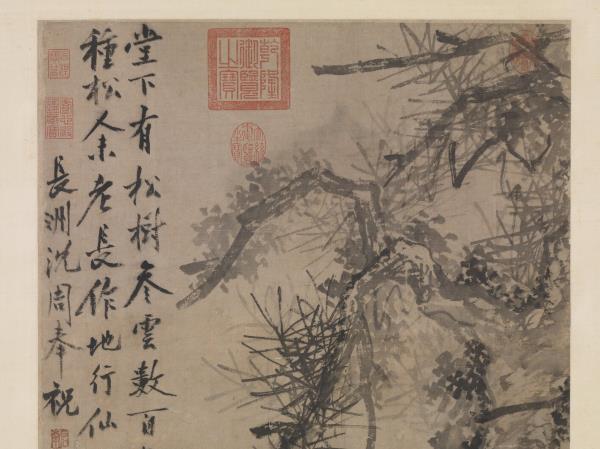 乾隆御覽之寶
堂下有松樹参雲數百
種松人未老長作地行仙
長洲沈周奉祝